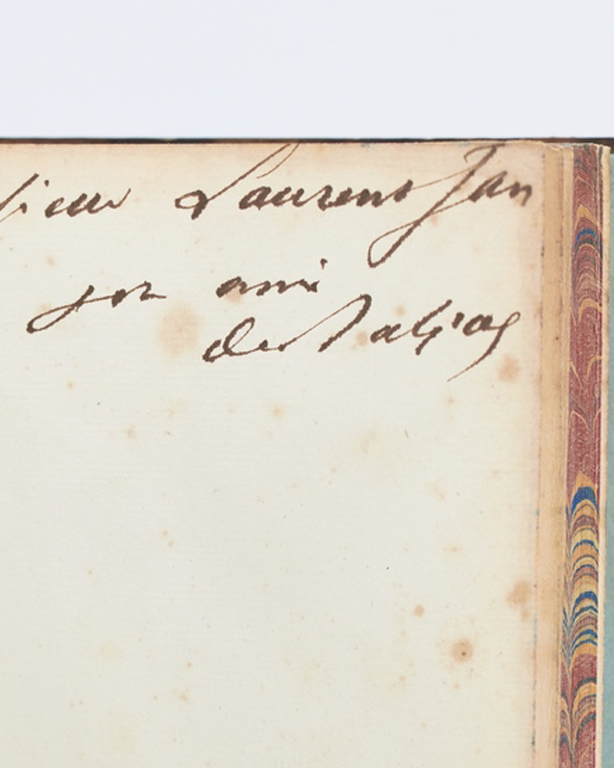 sieur Laurent Jan
son ami
de Balzac